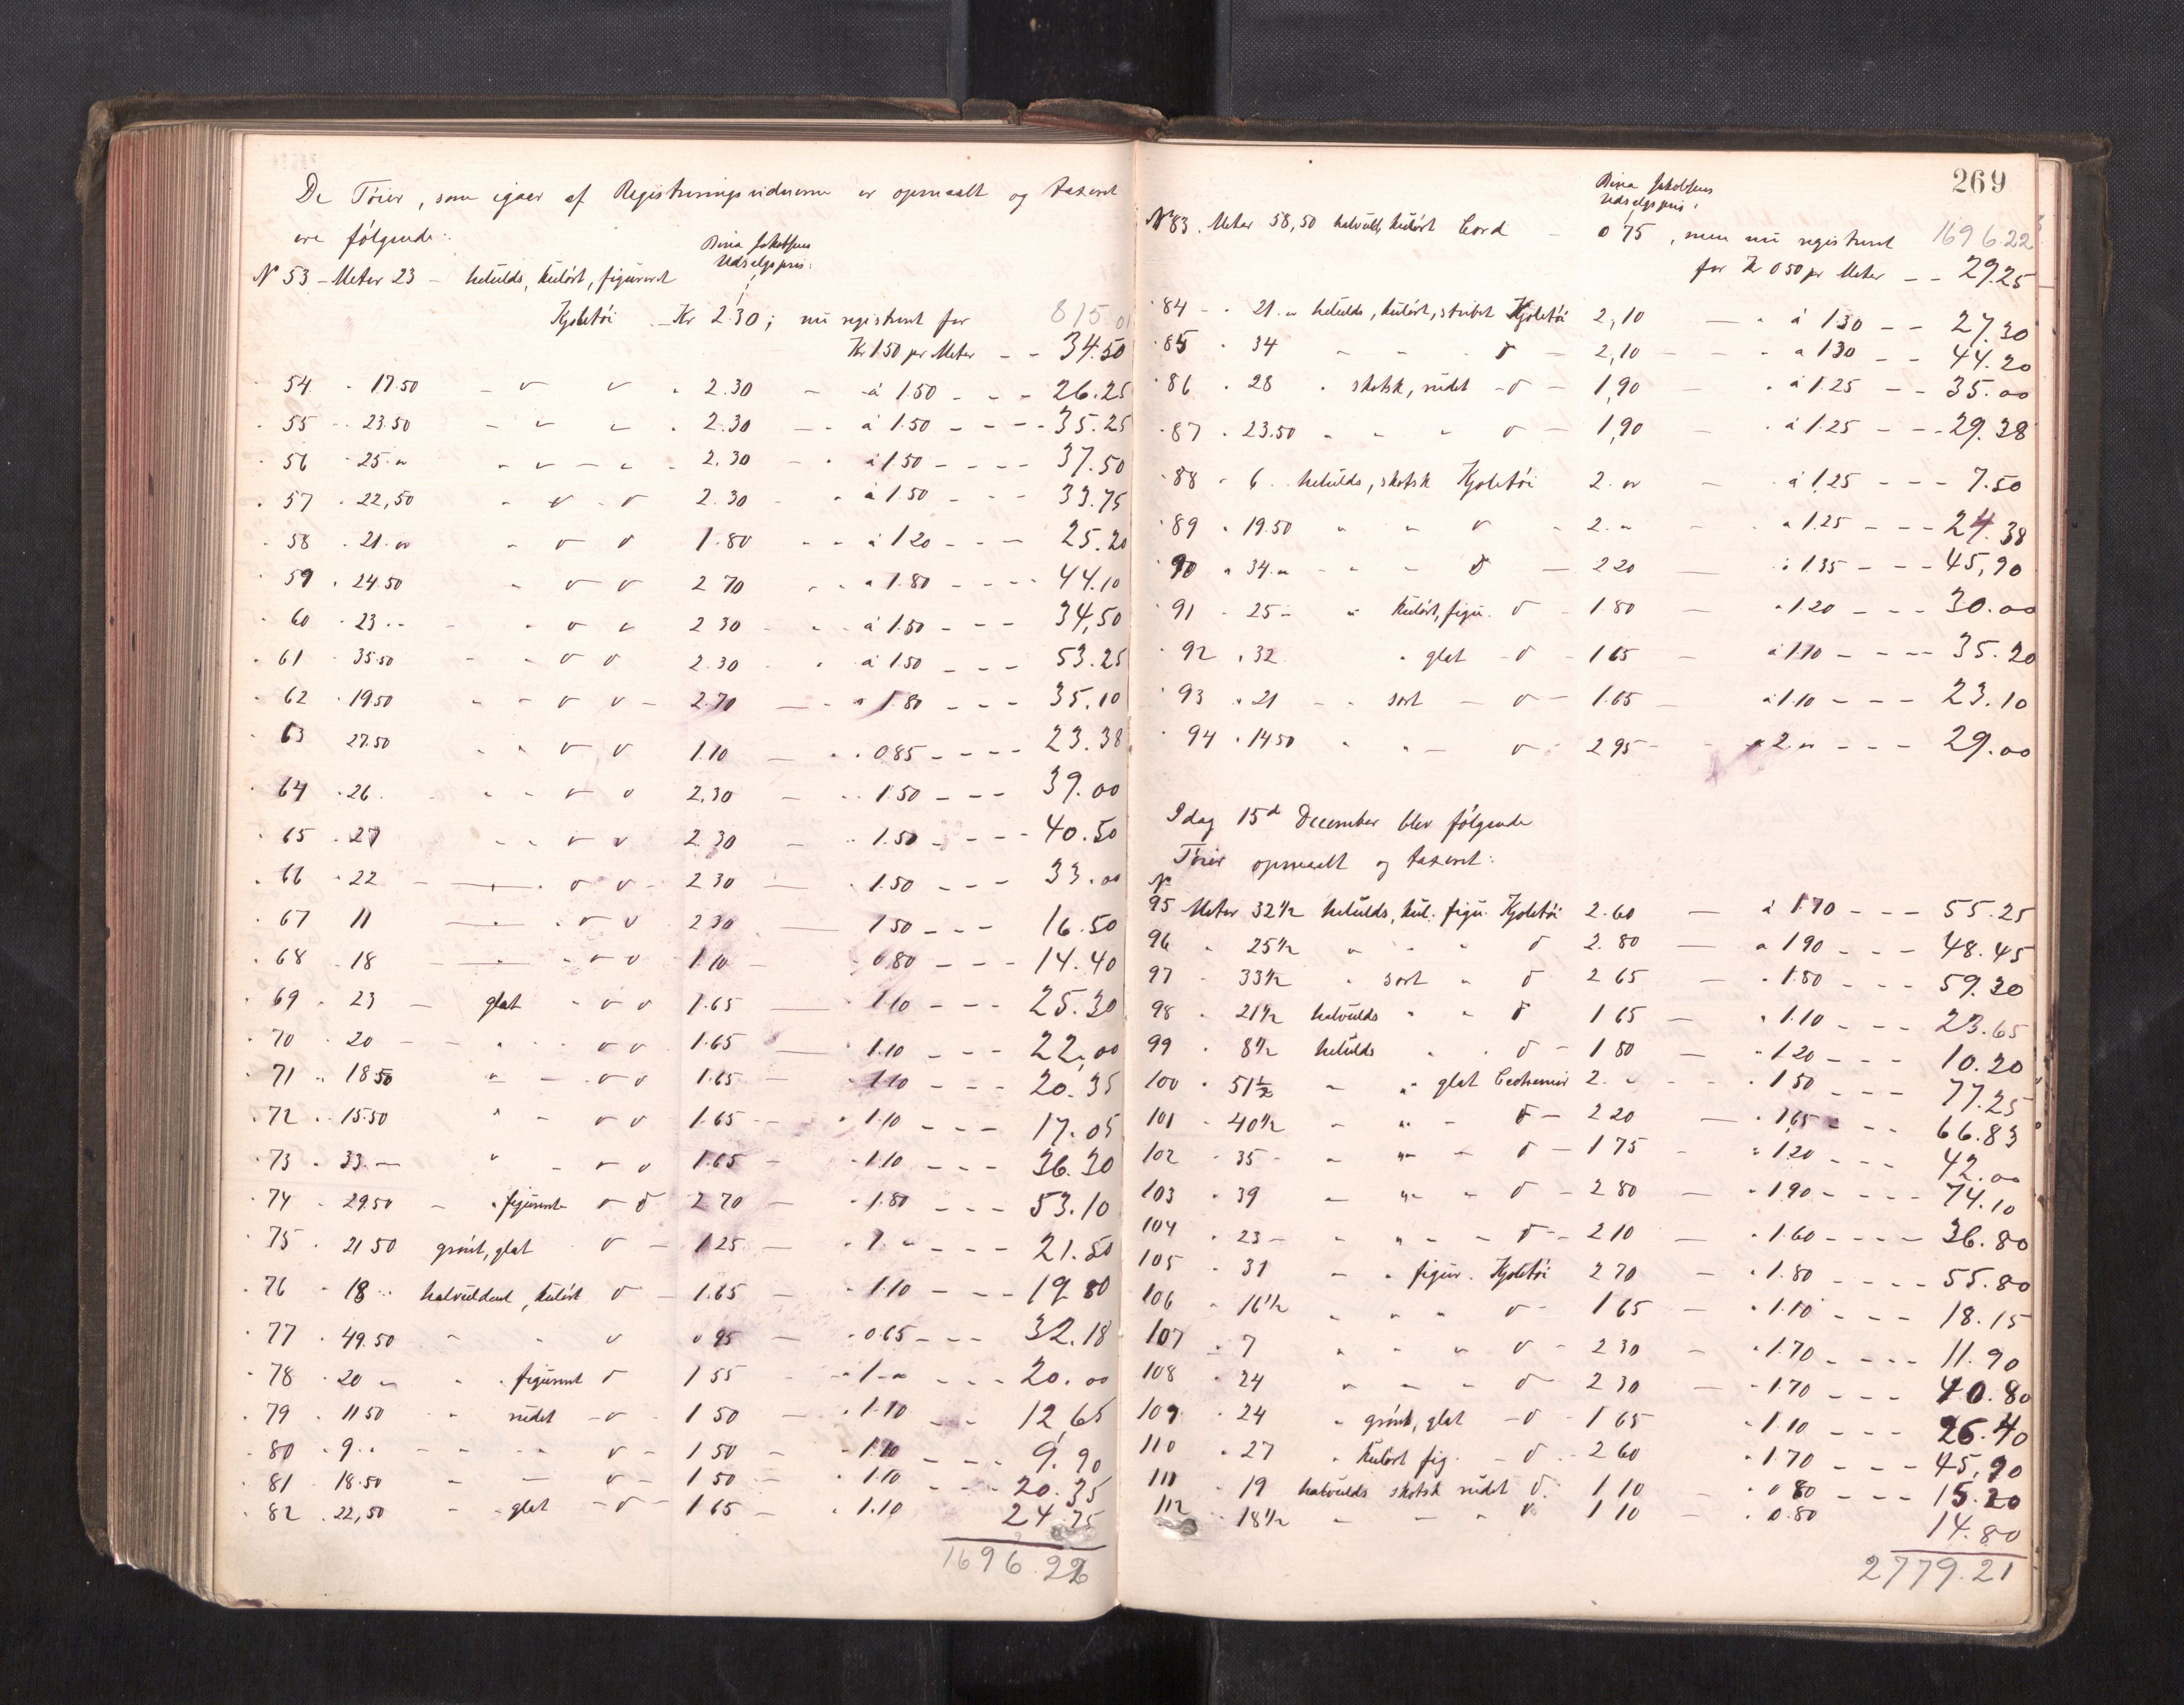 De Tøier, som igaar af Registreringsvidnerne er opmaalt og taxeret
ere følgende:
Dina Jakobsens
Udsalgspris:
N 53 – Meter 23 – heluld, kulørt, figureret
Kjoletøi – Kr 2.30; nu registreret for 815.01
Kr 1.50 pr Meter - - 34.50
54. " 17.50 - " " " 2.30 - à 1.50 - - - 26.25
55 - 23.50 - " " " 2.30 - à 1.50 - - - 35.25
56 " 25." - " - " - 2.30 - " à 1.50 - - - 37.50
57 " 22,50 " " - " 2.30 - " à 1.50 - - 33.75
58 . 21." " " " 1.80 " " à 1 20 - - - 25.20
59 " 24.50 " " " 2 70 " " à 1.80 - - - 44.10
60 " 23 " " " " " 2 30 " " à 1.50 - - - 34,50
61 " 35.50 " " " " 2.30 " " à 1.50 - - - 53.25
62 " 19.50 " " " " - 2.70 - " à 1.80 - - - 35.10
63 27.50 " " " " 1.10 - " " 0.85 - - - 23.38
64 " 26. " " " " 2,30 - " " 1.50 - - - 39.00
65 " 27 " " " " 2.30 - " " 1.50 - - - 40.50
66 " 22 - " " " - 2 30 - " 1.50 - - - 33.00
67 11 - " " " 2 30 - 1 50 - - - 16.50
68 " 18 - " - " " 1.10 - " 0.80 - - - 14.40
69 " 23 - glat " " " 1.65 - " 1.10 - - - 25.30
70 " 20 - - " " " " 1.65 - " 1.10 - - - 22,00
71 " 18 50 " - " " 1.65 - " 1.10 - - - 20.35
72 " 15.50 " - " " 1.65 - " 1.10 - - - 17.05
73 " 33. - " - " " 1.65 - " 1.10 - - - 36.30
74 " 29.50 - " figureret " " 2 70 - " 1.80 - - - 53.10
75 . 21 50 grønt, glat " - 1 25 - " 1 " - - - 21.50
76 " 18 " halvuldent, kulørt " - 1.65 - " 1.10 - - - 19 80
77 . 49.50 " " " 0 95 - " 0.65 - - - 32.18
78 " 20 " " " figureret " 1 55 - " 1 - " - - - 20.00
79 " 11 50 " rudet - " - 1 50 - " 1.10 - - 12,65
80 " 9 " " - " " " - 1 50 - " 1.10 - - - 9.90
81 " 18.50 " - " - 1 50 - " 1.10 - - - 20.35
82 . 22,50 - " glat - " - 1 65 - " 1.10 24.75
1696.22
269
Dina Jakobsens
Udsalgspris:
N 83. Meter 58,50 halvuld, kulørt Cord - 0 75, men nu registreret 1696.22
for Kr 0 50 pr Meter - - 29.25
" 84 - " 21." heluld, kulørt, stribet Kjoletøi 2,10 - " à 1 30 - - 27.30
" 85 " 34 " " " " - 2,10 - - " à 1 30 - - 44.20
" 86 " 28 " skotsk, rudet - " - 1,90 - " à 1.25 - - 35.00
" 87 " 23.50 " " " " - 1,90 " à 1.25 - - - 29.38
" 88 " 6 " heluld, skotsk Kjoletøi 2. " - " à 1.25 - - - 7.50
" 89 " 19.50 " " " " 2. " - " à 1.25 - - - 24.38
" 90 " 34." - " - " - 2 20 - " 1 35 - - - 45,90
" 91 " 25 - " kulørt, figu. " - 1 80 - " 1.20 - - - 30.00
" 92 " 32 " glat - " - 1 65 - à 1.10 - - - 35.20
" 93 " 21 - " sort - " - 1.65 - à 1.10 - - - 23.10
" 94 " 14 50 " " - " - 2 95 - " à 2." - - - 29.00
Idag 15d December blev følgende
Tøier opmaalt og taxeret:
N
95 Meter 32½ heluld, kul. figu. Kjoletøi 2.60 - à 1.70 - - - 55.25
96 " 25½ " " " " 2.80 - à 1 90 - - - 48.45
97 " 33½ " sort " " 2 65 - " 1.80 - - - 59.30
98 " 21½ halvuld " " " 1 65 - " 1.10 - - - 23.65
99 " 8½ heluld " " " - 1 80 - " 1 20 - - - 10.20
100 " 51½ - " glat Cashemir 2. " - " 1 50 - - - 77.25
101 " 40½ - " - " - 2 20 - " 1,65 - - - 66.83
102 " 35 - - " - " - 1 75 - " 1 20 - - - 42.00
103 " 39 - " - " - 2 80 - " 1.90 - - - 74.10
104 " 23 - " " - " - 2 10 - " 1.60 - - - 36.80
105 " 31 - " figur. Kjoletøi 2 70 - " 1.80 - - - 55.80
106 " 16½ " " " " - 1 65 - " 1.10 - - - 18.15
107 " 7 " " " " - 2 30 - " 1.70 - - - 11.90
108 " 24 " - " " 2 30 - " 1.70 - - - 40.80
109 " 24 " grønt, glat - " - 1 65 " 1.10 - - - 26.40
110 " 27 " kulørt fig. - " - 2 60 " 1 70 - - - 45,90
111 " 19 halvuld skotsk rudet " 1 10 - " 0 80 - - - 15.20
112 " 18½ - - " " 1 10 - " 0.80 14.80
2779.21